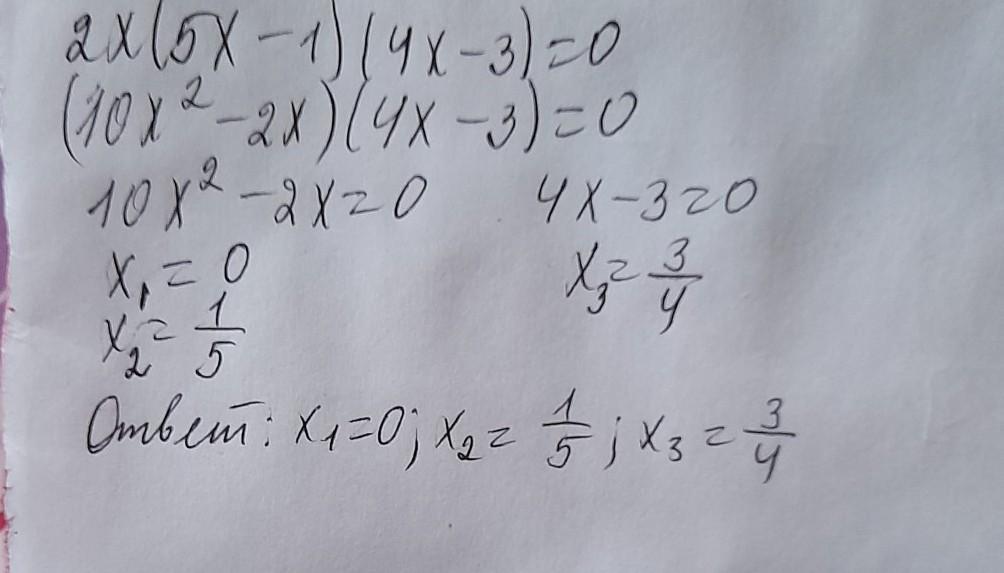 2x(5x-1)(4x-3)=0
(10x²-2x)(4x-3)=0
10x²-2x=0 4x-3=0
x₁=0 x₃=3/4
x₂=1/5
Ответ: x₁=0; x₂=1/5; x₃=3/4